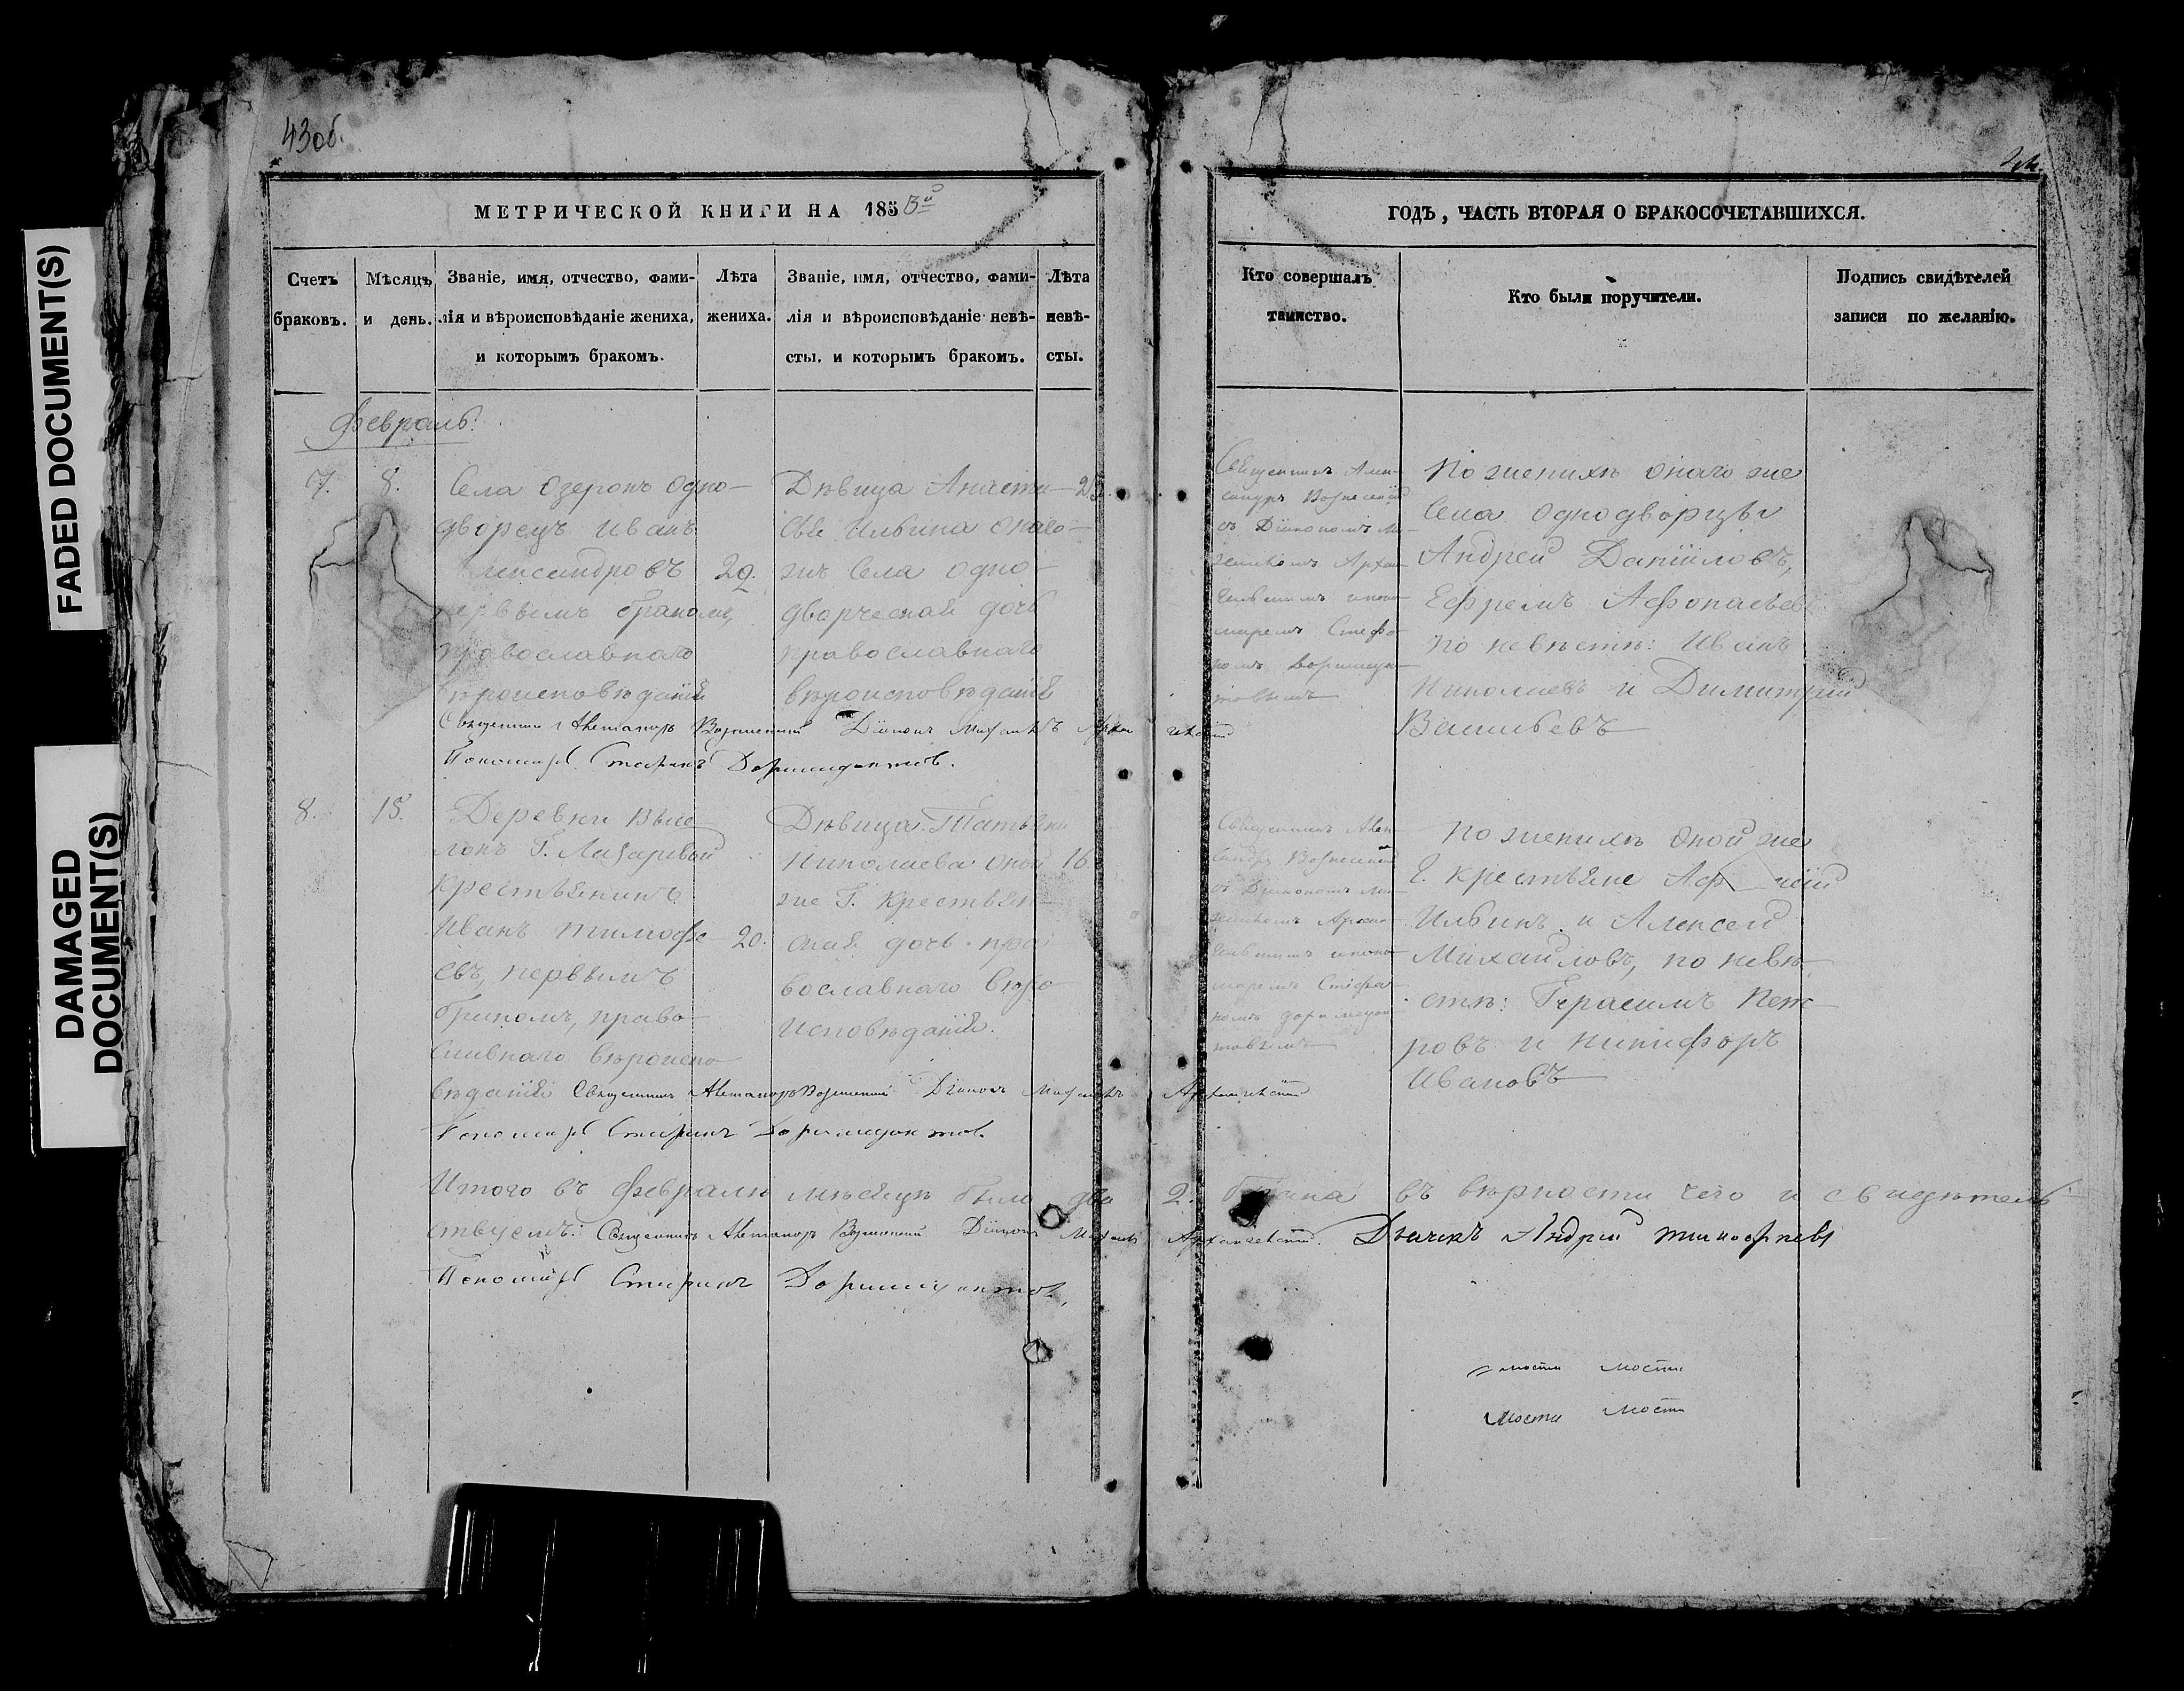 FADED DOCUMENT(S)
DAMAGED
DOCUMENT(S)
43об.
МЕТРИЧЕСКОЙ КНИГИ НА 185
Счетъ
браковъ.
Мѣсяцъ
и день.
Званіе, имя, отчество, фами-
лія и вѣроисповѣданіе жениха,
и которымъ бракомъ.
Лѣта
жениха.
Званіе, имя, отчество, фами-
лія и вѣроисповѣданіе невѣ-
сты, и которымъ бракомъ.
Лѣта
невѣ-
сты.
Февраль.
7.
8.
Села Озерокъ одно-
дворецъ Иванъ
Александровъ
первымъ бракомъ,
православнаго
вѣроисповѣданія
29.
Дѣвица Анаста-
сія Ильина онаго
же села одно-
дворческая дочь
православнаго
вѣроисповѣданія
25.
Священникъ Александръ Вознесенскій Діаконъ Михаилъ Архангельскій
Пономарь Стефанъ Доримедонтов.
8.
15.
Деревни Высе
локъ Г. Лазаревой
крестьянинъ
Иванъ Тимофе
евъ, первымъ
бракомъ, право-
славнаго вѣроиспо
вѣданія
20.
Дѣвица Татьяна
Николаева оной
же Г. крестьян-
ская дочь пра
вославнаго вѣро
исповѣданія.
16.
Священникъ Александръ Вознесенскій Діаконъ Михаилъ Архангельскій
Пономарь Стефанъ Доримедонтов.
Итого въ Февралѣ мѣсяцѣ было два 2. брака въ вѣрности чего и свидѣтель-
ствуемъ: Священникъ Александръ Вознесенскій Діаконъ Михаилъ Архангельскій. Дьячекъ Андрей Тимофеевъ
Пономарь Стефанъ Доримедонтов,
ГОДЪ, ЧАСТЬ ВТОРАЯ О БРАКОСОЧЕТАВШИХСЯ.
Кто совершалъ
таинство.
Кто были поручители.
Подпись свидѣтелей
записи по желанію.
Священникъ Алек-
сандръ Вознесенскій
съ Діакономъ Ми-
хаиломъ Архан
гельскимъ и поно
маремъ Стефа
номъ Доримедон
товымъ
По женихѣ онаго же
села однодворцы
Андрей Даніиловъ,
Ефремъ Афонасьевъ
по невѣстѣ: Иванъ
Николаевъ и Димитрій
Васильевъ
Священникъ Алек-
сандръ Вознесенскій
съ Діакономъ Ми-
хаиломъ Архан
гельскимъ и поно
маремъ Стефа
номъ Доримедон
товымъ
По женихѣ оной же
Г. крестьяне
Ильинъ и Алексей
Михайловъ, по невѣ
стѣ: Герасимъ Пет-
ровъ и Никифоръ
Ивановъ
мости мости
мости мости